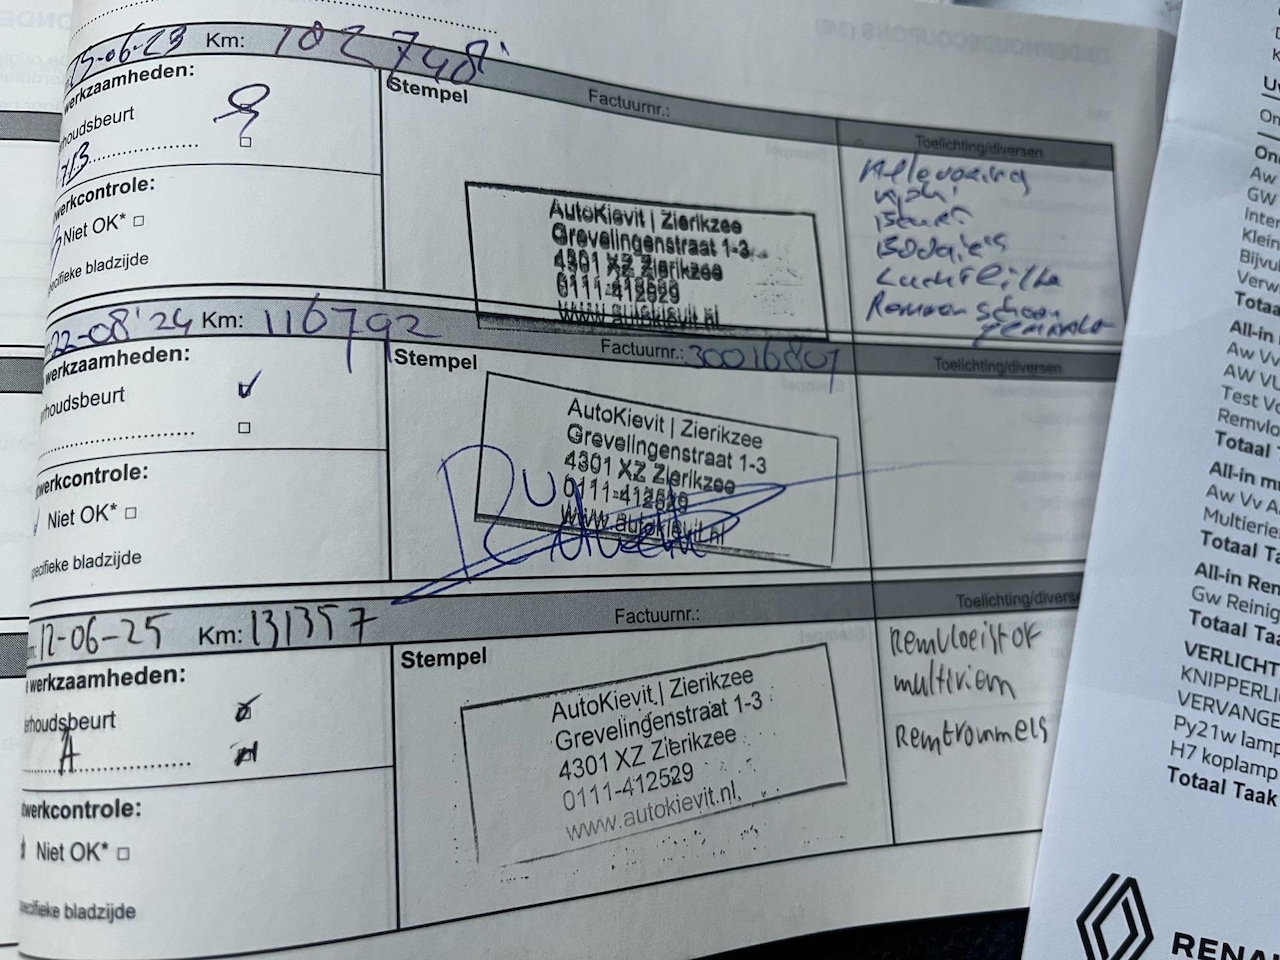 15-06-23 Km: 102748
werkzaamheden:
rhoudsbeurt
werkcontrole:
Niet OK*
specifieke bladzijde
Stempel
Factuurnr.:
AutoKievit | Zierikzee
Grevelingenstraat 1-3
4301 XZ Zierikzee
0111-412529
www.autokievit.nl
Toelichting/diversen
Remmen schoon
gemaakt
22-08'24 Km: 116792
werkzaamheden:
rhoudsbeurt
werkcontrole:
Niet OK*
specifieke bladzijde
Stempel
Factuurnr.: 30016807
AutoKievit | Zierikzee
Grevelingenstraat 1-3
4301 XZ Zierikzee
0111-412529
www.autokievit.nl
Toelichting/diversen
12-06-25 Km: 131357
werkzaamheden:
rhoudsbeurt
A
werkcontrole:
Niet OK*
specifieke bladzijde
Stempel
Factuurnr.:
AutoKievit | Zierikzee
Grevelingenstraat 1-3
4301 XZ Zierikzee
0111-412529
www.autokievit.nl
Toelichting/diverse
Remvloeistof
multiriem
Remtrommels
On
Aw
GW
Inter
Klein
Bijvul
Verw
Totaa
All-in
Aw Vv
AW VL
Test Vo
Remvlo
Totaal
All-in mu
Aw Vv A
Multierie
Totaal Ta
All-in Ren
Gw Reinig
Totaal Taa
VERLICHT
KNIPPERLI
VERVANGE
Py21w lamp
H7 koplamp
Totaal Taak
RENA